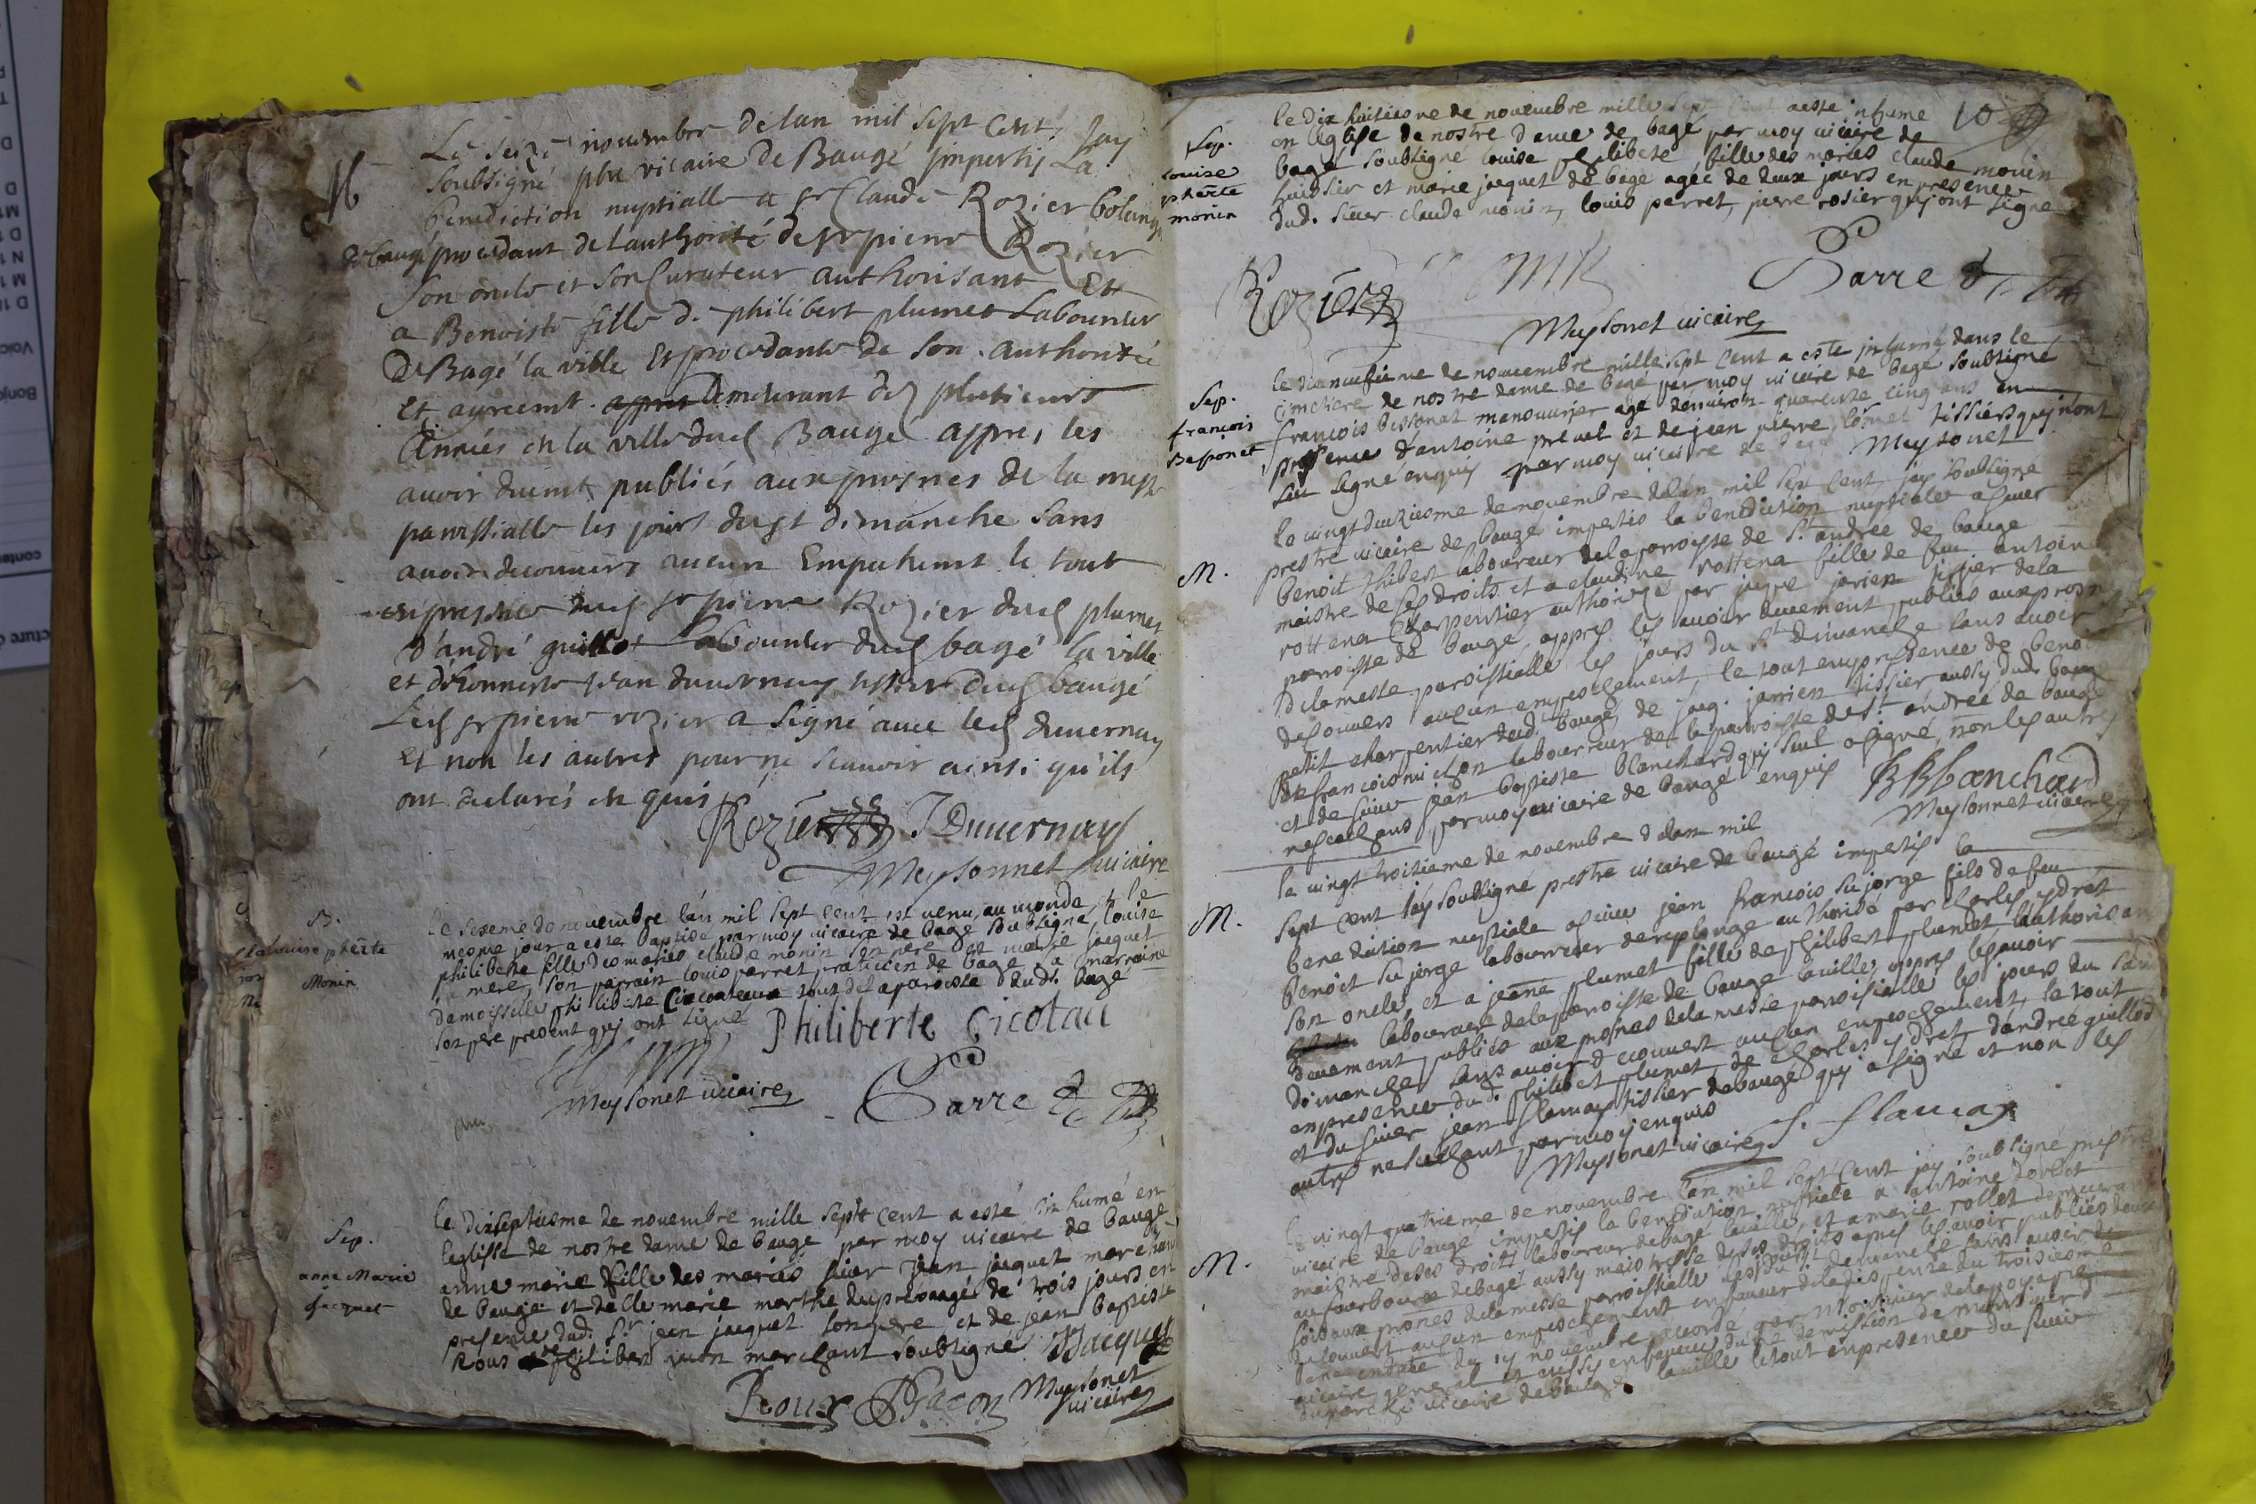 M
Le seize novembre de lan mil sept cent, Jay
soubsigné pbre vicaire de Baugé imperty La
benediction nuptialle a sr Claude Rozier bolanger
de baugé procedant de lauthorité de sr pierre Rozier
son oncle et son Curateur authorisant Et
a Benoiste fille de philibert plumet Laboureur
De Bagé la ville Et procedante de son authorité
Et agreement demeurant des plusieurs
Années en la ville dud Baugé appres les
avoir duemt publiés aux prosnes de la messe
parroissialle les jours de st dimanche sans
avoir decouvers aucun Empechemt le tout
en presence dud sr pierre Rozier dud plumet
d'andré guillot Laboureur dud bagé la ville
et d'honneste jean duvernay tissier dud baugé
Led sr pierre rozier a signé avec led duvernay
Et non les autres pour ne scavoir ainsi qu'ils
ont declarés en quis
Rozier J Duvernay
Meysonnet vicaire
B.
louise phẽrte
Monin
le sesieme de novembre lan mil sept cent est venu au monde et le
mesme jour a esté baptisé par moy vicaire de bagé soubsigné louise
philiberte fille des mariés claude monin son père et marie jacquet
sa mere, son parrain louis parret praticien de bagé sa marraine
demoiselle philiberte Cicouteaux tout de la paroisse dudt bagé
son père present qui ont signé
Philiberte Cicotau
Meysonet vicaire
Parret
Sep.
anne Marie
Jacquet
le dixseptiesme de novembre mille sept cent a esté inhumé en
leglisse de nostre dame de baugé par moy vicaire de baugé
anne marie fille des mariés sieur jean jacquet marchand
de baugé et de dlle marie marthe dupré aagée de trois jours en
presence dud. sr jean jacquet son père et de jean baptiste
Roux et philibert jacon marchant soubsigné
JJacquet
Roux PJacon Meysonet
vicaire
10
Sep.
Louise
phẽrte
monin
le dix huitiesme de novembre mille sept cent a esté inhumé
en leglise de nostre dame de bagé par moy vicaire de
bagé soubsigné louise philiberte, fille des mariés claude monin
huissier et marie jacquet de bagé agée de deux jours en presence
dud. sieur claude monin, louis perret, pierre rosier qui ont signé
Rozier Parret
Meysonet vicaire
Sep.
françois
Bessonet
le dixneufieme de novembre mille sept cent a esté inhumé dans le
cimetiere de nostre dame de bagé par moy vicaire de bagé soubsigné
françois bessonat manouvrier agé denviron quarente cinq ans en
presence dantoine preuel et de jean pierre cornet tissiers qui n'ont
sceu signé enquis par moy vicaire de bagé Meysonet
M.
le vingt deuxiesme de novembre de lan mil sept cent jay soubsigné
prestre vicaire de baugé impertis la benediction nuptiale a sieur
benoit thibert laboureur de la paroisse de st. andree de baugé
maistre de ses droits et a claudine rottena fille de feu antoine
rottena charpentier authorizé par jaque jarien tissier de la
paroisse de baugé, appres les avoir duement publiés aux prosnes
de la messe paroissialle les jours du st dimanche sans avoir
descouvers aucun empeschement, le tout en presence de benoit
petit charpentier dudt baugé de jaq. jarrien tissier aussy dudt baugé
de francois michon laboureur de la parroisse de st. andrée de baugé
et de sieur jean baptiste blanchard qui seul a signé, non les autres
ne scachans par moy vicaire de baugé enquis
BBlanchard
Meysonnet vicaire
M.
le vingt troisieme de novembre de lan mil
sept cent jay soubsigné prestre vicaire de baugé impertis la
benediction nuptiale a sieur jean francois sujorge fils de feu
benoit sujorge laboureur de replonge authorisé par charles ydrét
son oncle, et a jeane plumet fille de philibert plumet lauthorisant
laboureur de la paroisse de baugé la ville, appres les avoir
deuement publiés aux prosnes de la messe parroissialle les jours du saint
dimanche, sans avoir decouvert aucun empeschement, le tout
en presence dudt philibert plumet, de charles ydret dandree guillod
et du sieur jean flamay tissier de baugé qui a signé et non les
autres ne sachant par moy enquis
Meysonet vicaire J. flamay
M.
le vingt quatrieme de novembre lan mil sept cent jay soubsigné prestre
vicaire de baugé impertis la benediction nuptiale a antoine
maistre de ses droits laboureur de bagé la ville, et a marie rollet demeurant
au faurbourg de bagé aussy maistresse de ses droits apres les avoir publiés deux
fois aux prones de la messe parroissialle les jours de dimanche sans avoir de
decouvert aucun empeschement en faveur de la dispense du troisieme
ban en datte du 19 novembre accordé par monsieur
vicaire general et aussy en faveur dudt demission de monsieur
vicaire de baugé la ville le tout en presence du sieur